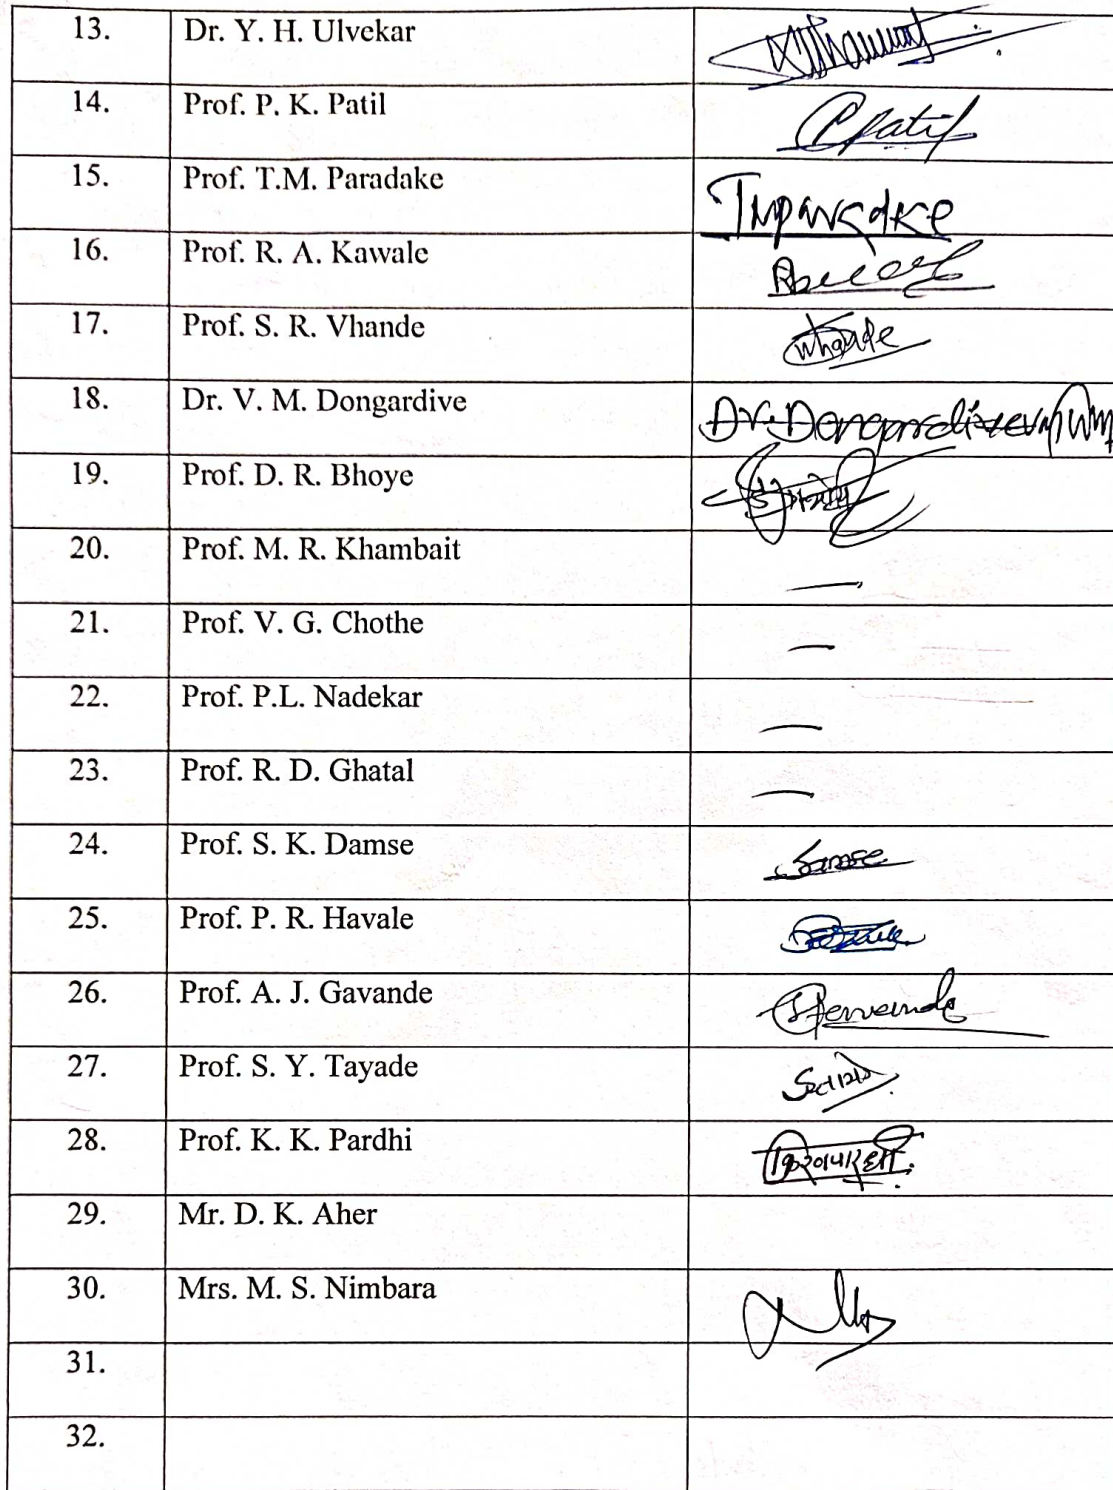 13. Dr. Y. H. Ulvekar
14. Prof. P. K. Patil Patil
15. Prof. T.M. Paradake Tmparadke
16. Prof. R. A. Kawale
17. Prof. S. R. Vhande Vhande
18. Dr. V. M. Dongardive Dr. Dongardive
19. Prof. D. R. Bhoye
20. Prof. M. R. Khambait —
21. Prof. V. G. Chothe —
22. Prof. P.L. Nadekar —
23. Prof. R. D. Ghatal —
24. Prof. S. K. Damse Damse
25. Prof. P. R. Havale
26. Prof. A. J. Gavande
27. Prof. S. Y. Tayade
28. Prof. K. K. Pardhi
29. Mr. D. K. Aher
30. Mrs. M. S. Nimbara
31.
32.